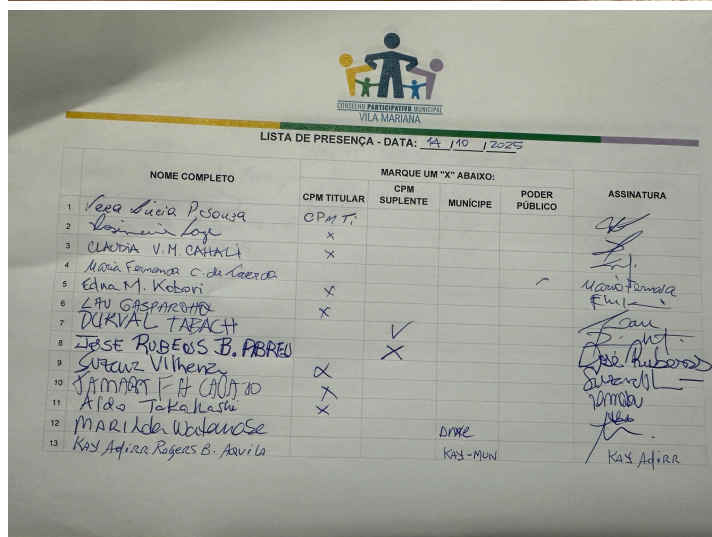 CONSELHO PARTICIPATIVO MUNICIPAL
VILA MARIANA
LISTA DE PRESENÇA - DATA: 14 / 10 / 2025
NOME COMPLETO
MARQUE UM "X" ABAIXO:
CPM TITULAR
CPM SUPLENTE
MUNÍCIPE
PODER PÚBLICO
ASSINATURA
1 Vera Lucia P. Souza CPM T.
2 x
3 CLAUDIA V.M. CAHALI x
4 Maria Fernanda C. de Maria Fernanda
5 Edna M. Kobori x
6 LAU x
7 DURVAL TABACH
8 JOSE RUBENS B. ABREU X José Rubens
9 Vilhena x
10 x
11 Aldo Takahashi x
12 MARILda Watanase
13 KAY Adirr Rogers B. AquiLA KAY-MUN KAY Adirr